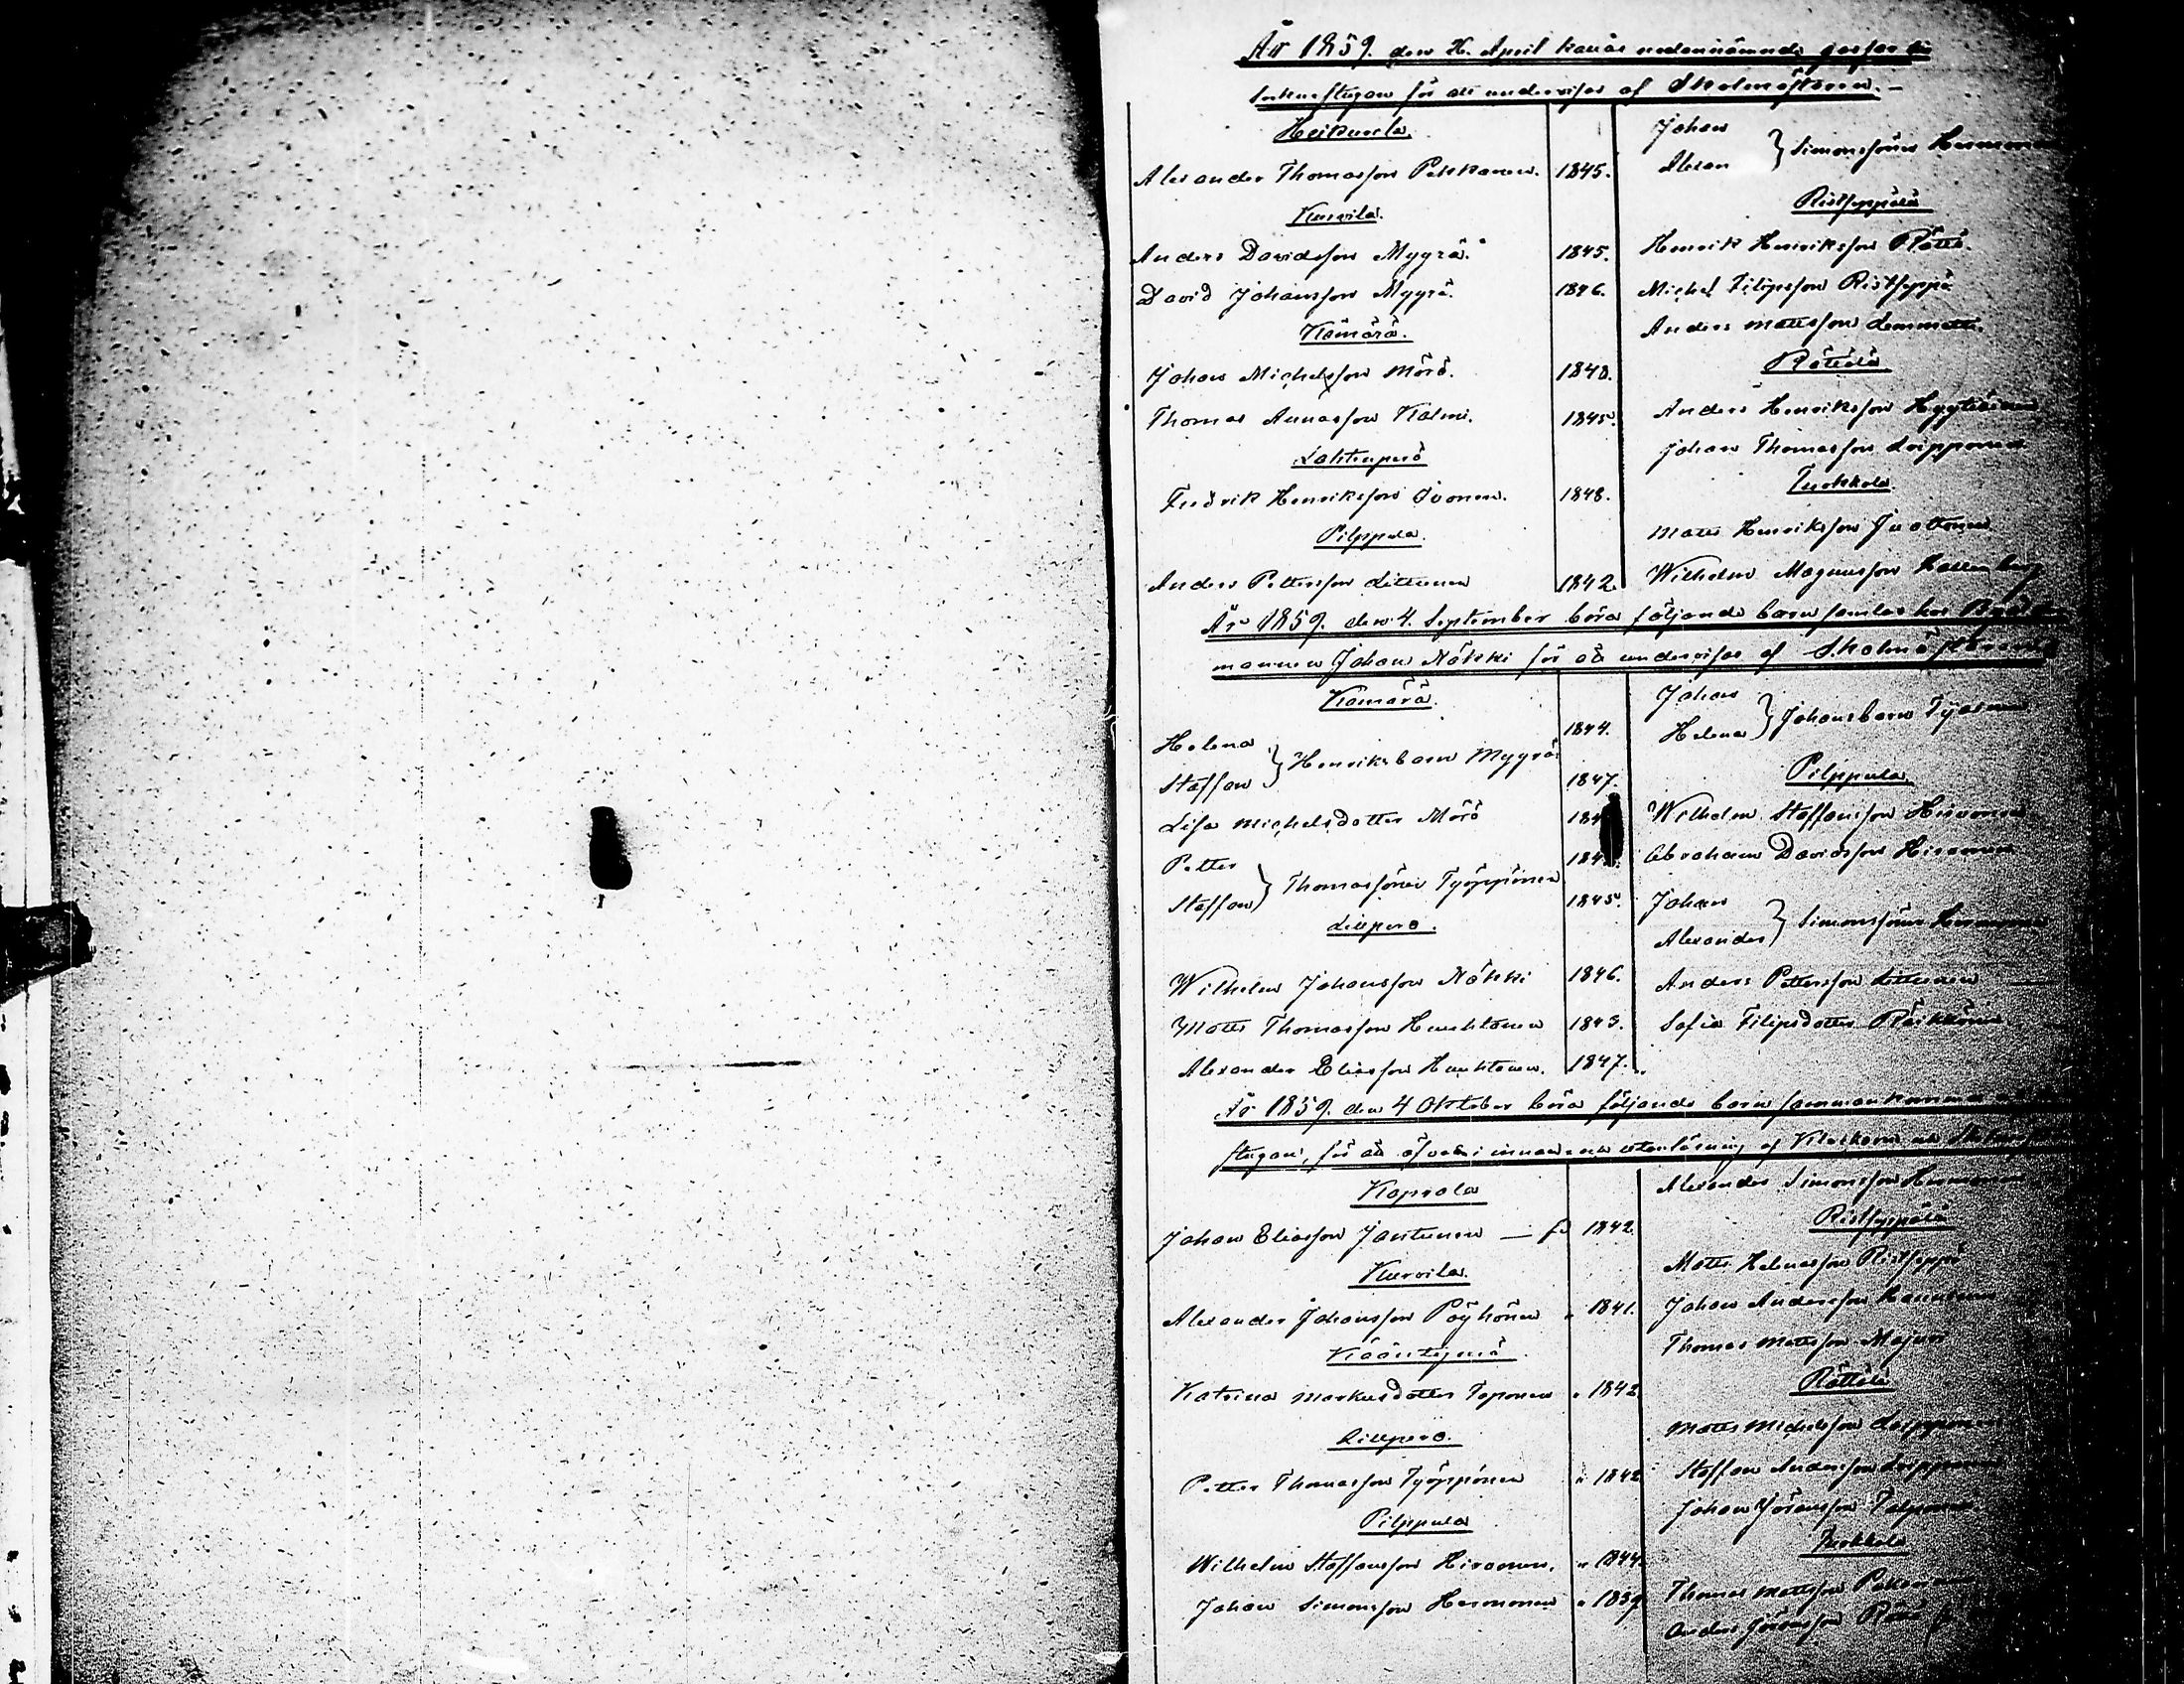 År 1859. den 26. April kallas nedannämnde gossar till
sockenstugan för att undervisas af Skolmästaren. —
Heikurila.
Alexander Thomasson Pekkanen. 1845.
Kurvila.
Anders Davidsson Myyrä. 1845.
David Johansson Myyrä. 1846.
Kämärä.
Johan Michelsson Mörö. 1848.
Thomas Annasson Kalmi. 1845.
Lahtenperä
Fredrik Henriksson Ivonen. 1848.
Pilppula.
Anders Pettersson Littunen 1842.
Johan
Alexan } Simonssöner Hermonen
Ristseppälä
Henrik Henriksson Rättö.
Michel Filipsson Ristseppä
Anders Mattsson Lemmetti.
Rättälä
Anders Henriksson Hyytiäinen
Johan Thomasson Leipponen
Turkkola.
Matts Henriksson Juottonen
Wilhelm Magnusson
År 1859. den 4. September böra följande barn samlas hos
mannen Johan Näkki för att undervisas af Skolmästaren
Kämärä.
Helena
Staffan } Henriksbarn Myyrä 1844. 1847.
Lisa Michelsdotter Mörö
Petter
Staffan } Thomassöner Työppönen 1845.
Liupero.
Wilhelm Johansson Näkki 1846.
Matts Thomasson Huuhtanen 1843.
Alexander Eliasson Huuhtanen. 1847.
Johan
Helena } Johansbarn
Pilppula.
Wilhelm Staffansson Hirvonen
Abraham Davidsson Hirvonen
Johan
Alexander } Simonssöner Hermonen
Anders Pettersson Littunen
Sofia Filipsdotter Räikkönen
År 1859. den 4 Oktober böra följande barn sammankomma
stugan, för att öfvas i innan och utanläsning af Klockaren och
Kaprola
Johan Eliasson Jantunen — fd 1842.
Kurvila.
Alexander Johansson Pöyhönen " 1841.
Kääntymä.
Katrina Markusdotter Toponen " 1842
Liupero.
Petter Thomasson Työppönen " 1842
Pilppula
Wilhelm Staffansson Hirvonen. " 1844.
Johan Simonsson Hermonen " 1839
Alexander Simonsson Hermonen
Ristseppälä
Matts Helenasson Ristseppä
Johan Andersson
Thomas Mattsson Majuri
Rättälä
Matts Michelsson Leipponen
Staffan Andersson Leipponen
Johan Göransson
Turkkola
Thomas Mattsson
Anders Göransson Rättö